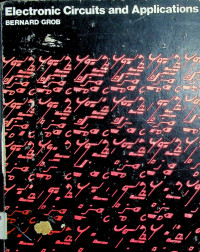 Electronic Circuits and Applications
BERNARD GROB